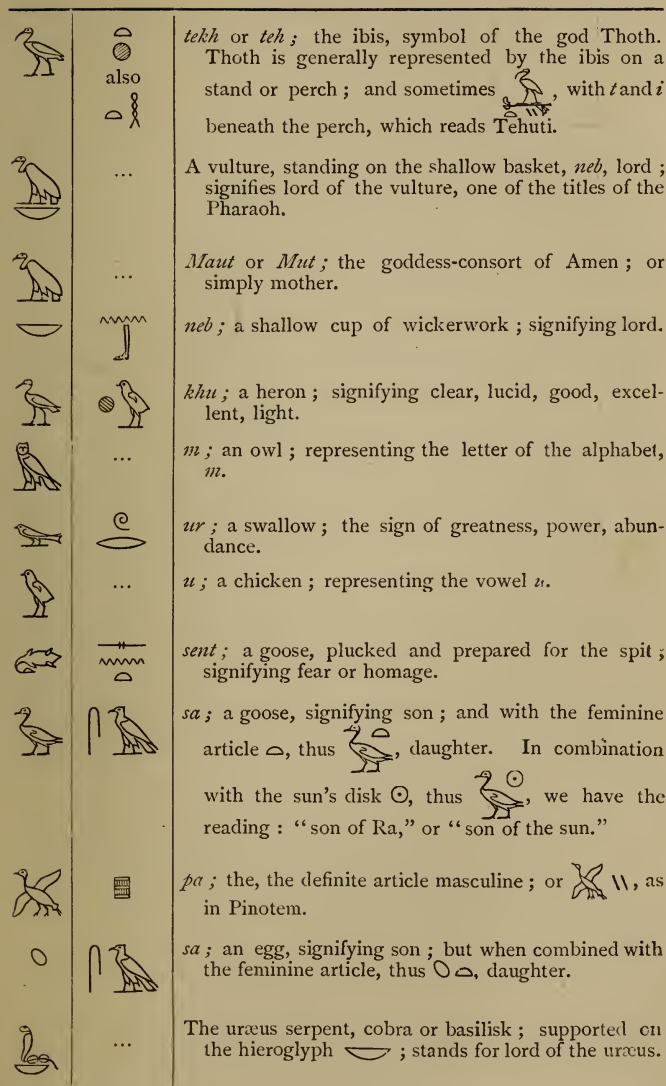 tekh or teh ; the ibis, symbol of the god Thoth.
Thoth is generally represented by the ibis on a
also
stand or perch ; and sometimes 𓅝, with t and i
beneath the perch, which reads Tehuti.
... A vulture, standing on the shallow basket, neb, lord ;
signifies lord of the vulture, one of the titles of the
Pharaoh.
... Maut or Mut ; the goddess-consort of Amen ; or
simply mother.
neb ; a shallow cup of wickerwork ; signifying lord.
khu ; a heron ; signifying clear, lucid, good, excel-
lent, light.
... m ; an owl ; representing the letter of the alphabet,
m.
ur ; a swallow ; the sign of greatness, power, abun-
dance.
... u ; a chicken ; representing the vowel u.
sent ; a goose, plucked and prepared for the spit ;
signifying fear or homage.
sa ; a goose, signifying son ; and with the feminine
article 𓏏, thus 𓅭𓏏, daughter. In combination
with the sun's disk ☉, thus 𓅭𓇳, we have the
reading : “son of Ra,” or “son of the sun.”
pa ; the, the definite article masculine ; or 𓅮 \\, as
in Pinotem.
sa ; an egg, signifying son ; but when combined with
the feminine article, thus 𓆇𓏏, daughter.
... The uræus serpent, cobra or basilisk ; supported on
the hieroglyph 𓎟 ; stands for lord of the uræus.